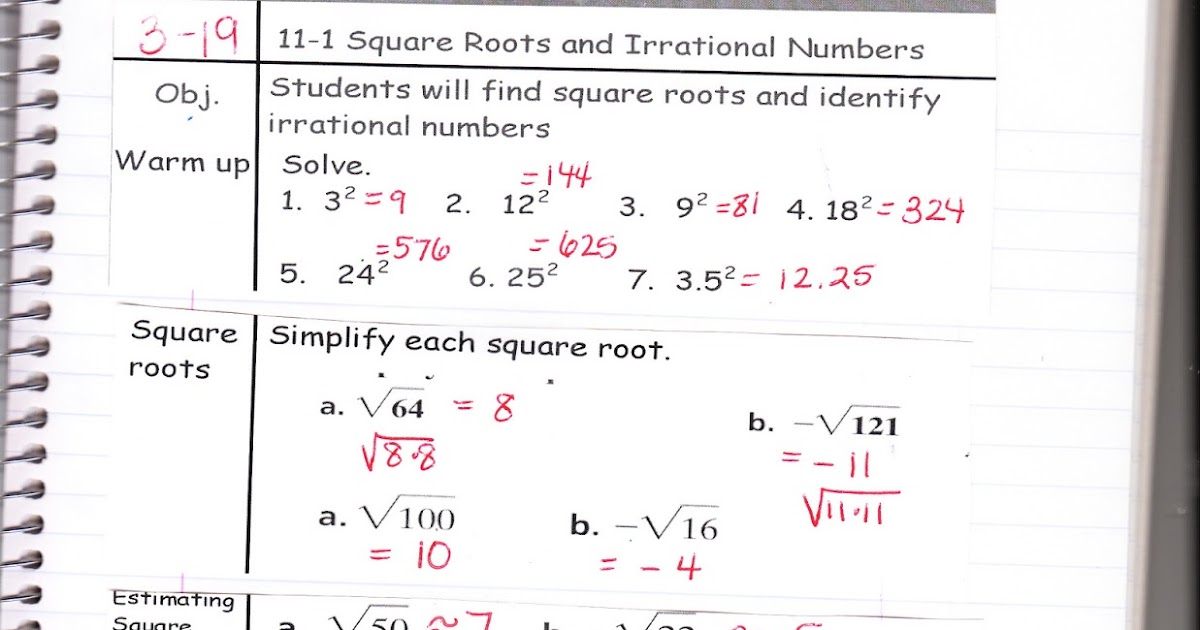 3-19 11-1 Square Roots and Irrational Numbers
Obj. Students will find square roots and identify
irrational numbers
Warm up Solve.
1. 3² = 9 2. 12² = 144 3. 9² = 81 4. 18² = 324
5. 24² = 576 6. 25² = 625 7. 3.5² = 12.25
Square roots
Simplify each square root.
a. √64 = 8
√8·8
b. -√121
= -11
√11·11
a. √100
= 10
b. -√16
= -4
Estimating
Square
a √50 ≈7